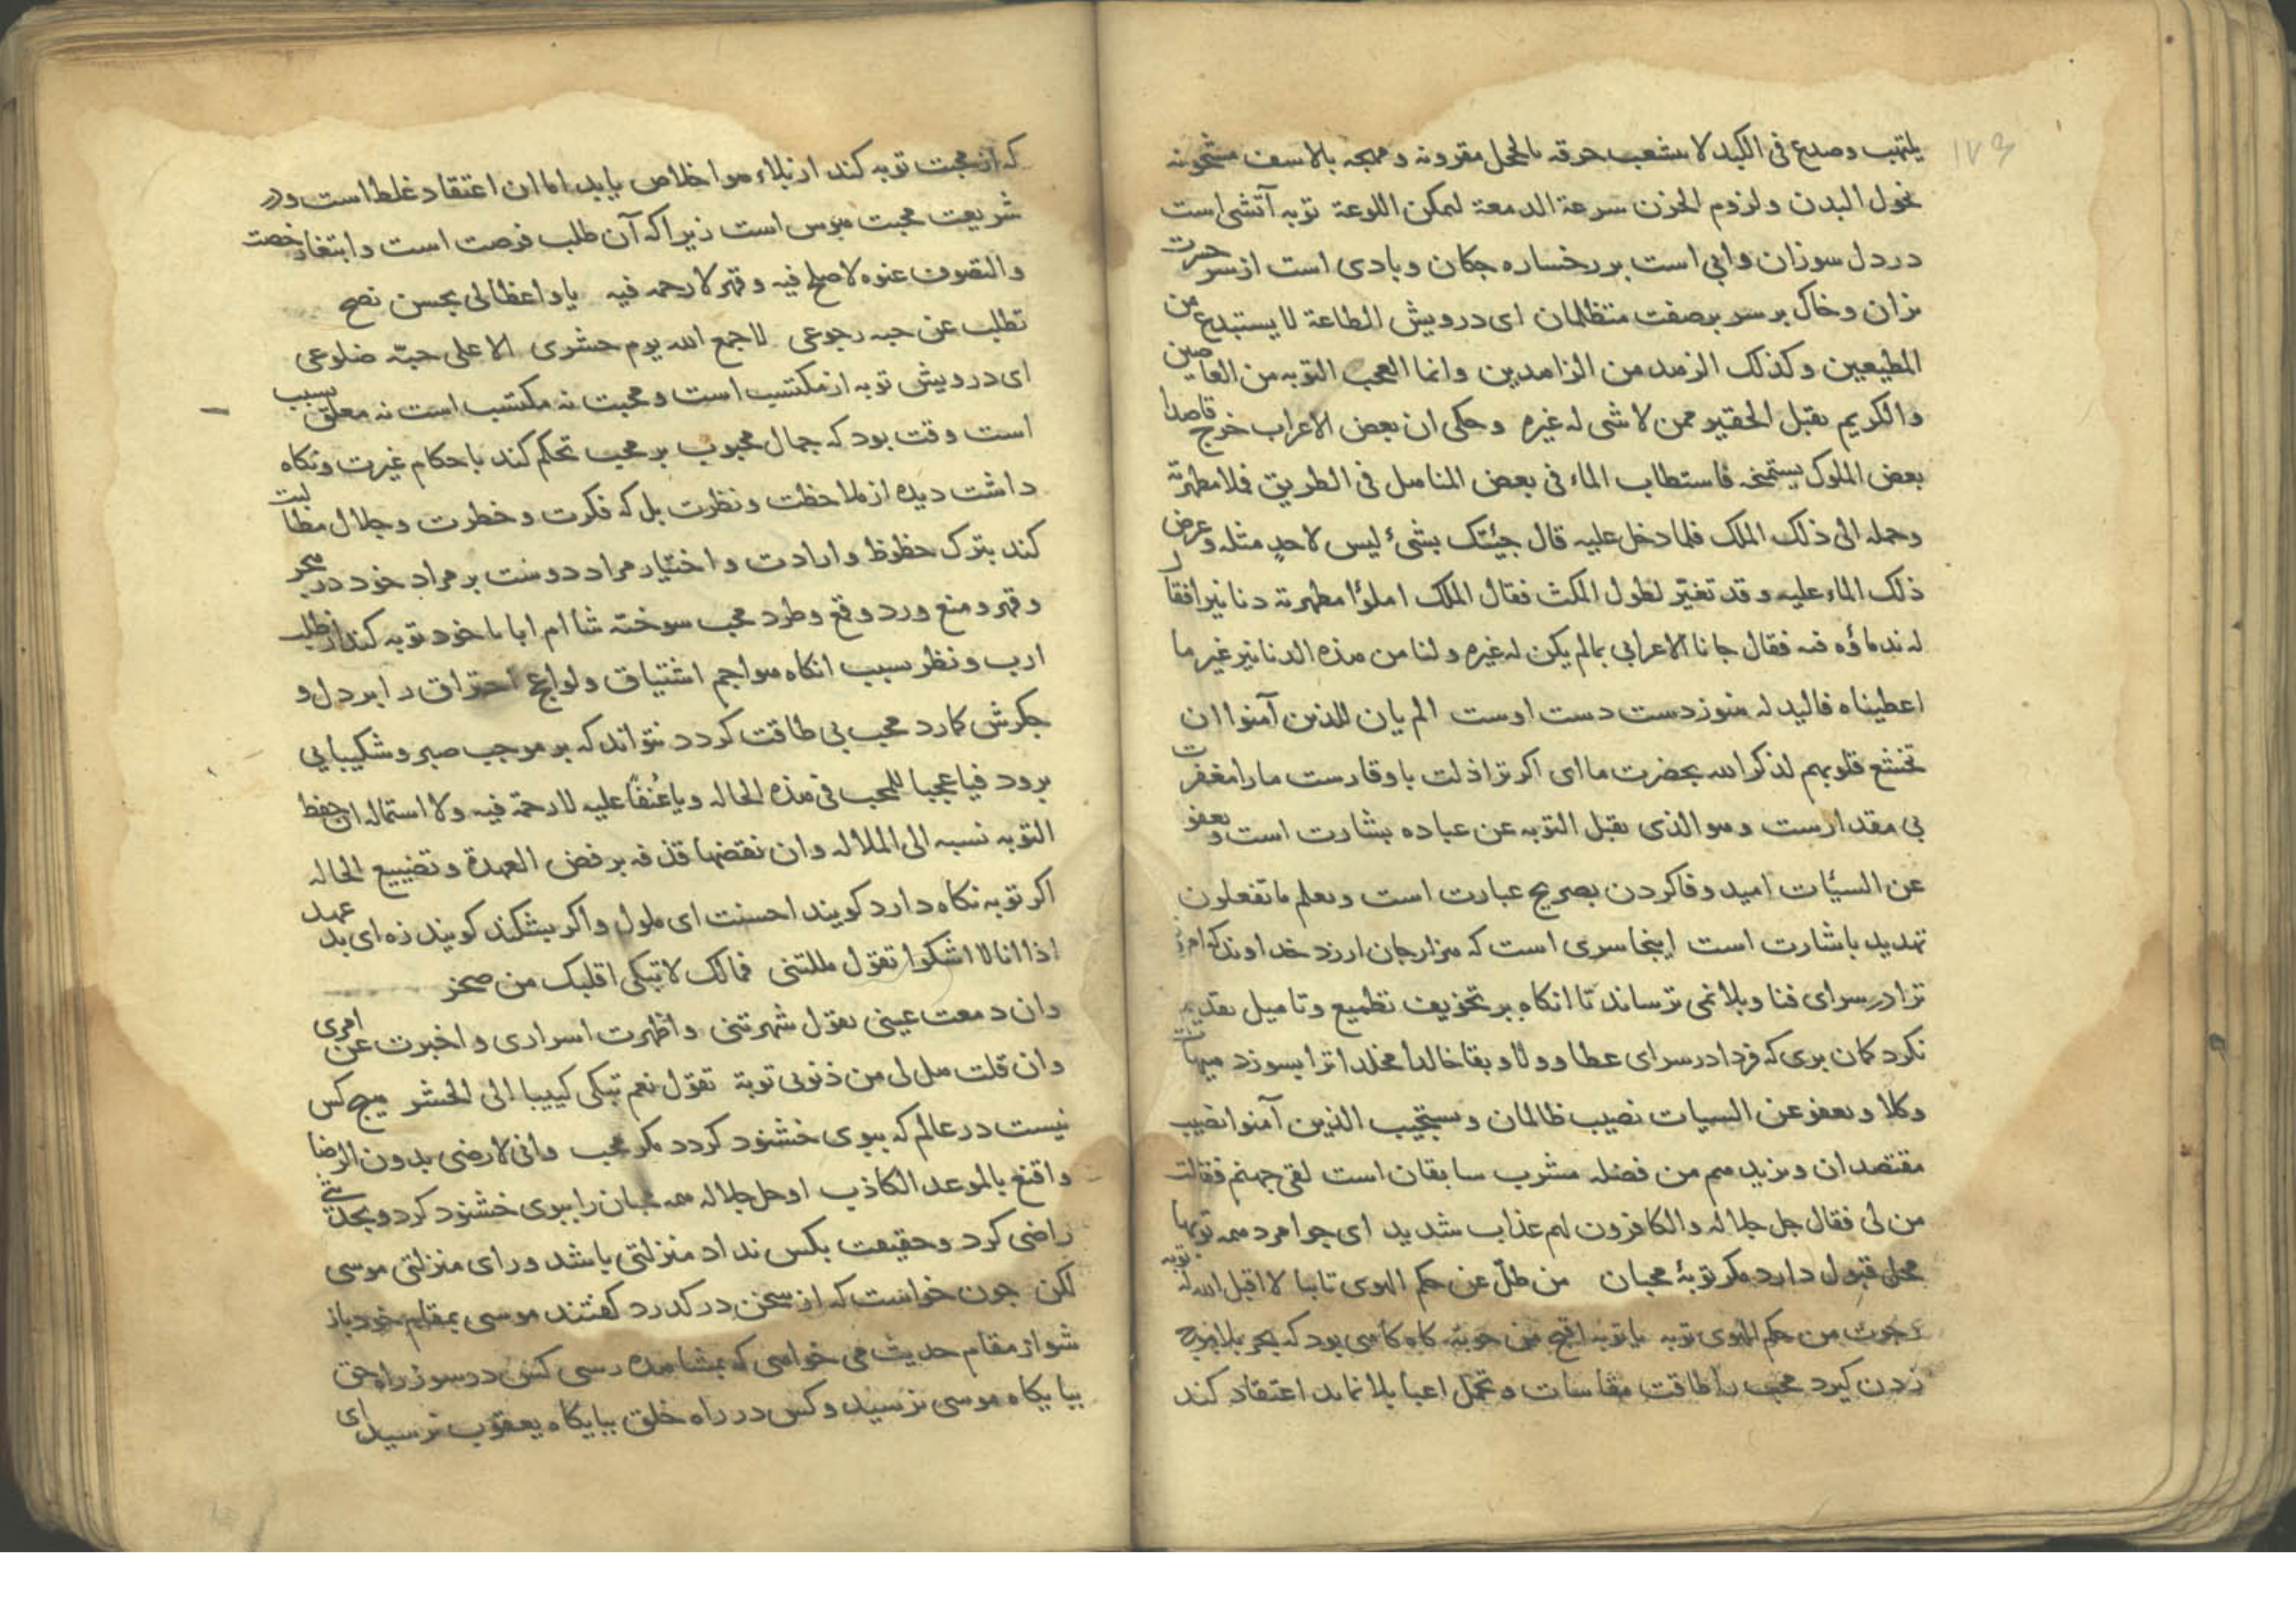 ۱۷۹
یلتهب وصدع فی الکبد لا یشعب حرقه بالخجل مقرونه ومهجه بالاسف مشحونه
نحول البدن ولزوم الحزن سرعة الدمعة لتمکن اللوعة توبه آتشی است
در دل سوزان وابی است بر رخساره چکان وبادی است از سر حسرت
بزان وخاک بر سر بر صفت متظلمان ای درویش الطاعة لا یستبدع من
المطیعین وکذلک الزهد من الزاهدین وانما العجب التوبه من العاصین
والکریم یقبل الحقیر ممن لا شی له غیره وحکی ان بعض الاعراب خرج قاصدا
بعض الملوک یستمنحه فاستطاب الماء فی بعض المناهل فی الطریق فملا مطهرته
وحمله الی ذلک الملک فلما دخل علیه قال جیئتک بشیٔ لیس لاحدٍ مثله وعرض
ذلک الماء علیه وقد تغیّر لطول المکث فقال الملک املؤا مطهرته دنانیر افقال
له ندماؤه فیه فقال جانا الاعرابی بما لم یکن له غیره ولنا من هذه الدنانیر غیر ما
اعطیناه فالید له هنوز دست دست اوست الم یان للذین آمنوا ان
تخشع قلوبهم لذکر الله بحضرت ما ای اکر ترا ذلت با وقارست ما را مغفرت
بی مقدارست وهو الذی یقبل التوبه عن عباده بشارت است ویعفو
عن السیّات امید وفا کردن بصریح عبارت است ویعلم ما تفعلون
تهدید باشارت است اینجا سری است که هزار جان ارزد خداوند که امروز
ترا در سرای فنا وبلا نمی ترساند تا انکاه بر تخویف تطمیع وتامیل تقدیم
نکرد کمان بری که فردا در سرای عطا وولا وبقا خالدا مخلدا ترا بسوزد هیهات
وکلا ویعفو عن السیات نصیب ظالمان ویستجیب الذین آمنوا نصیب
مقتصدان ویزیدهم من فضله مشرب سابقان است لقی جهنم فقالت
من لی فقال جل جلاله والکافرون لهم عذاب شدید ای جوامرد همه توبها
محل قبول دارد مکر توبهٔ محبان من ظلّ عن حکم الهوی تایبا لا اقبل الله له توبه
رجوت من حکم الهوی توبه یا توبه اقبح من حوبة کاه کاهی بود که بحر بلا موج
زدن کیرد محب را طاقت مقاسات وتحمل اعبا بلا نماید اعتقاد کند
که از محبت توبه کند از بلاء هوا خلاص یابد اما ان اعتقاد غلط است ودر
شریعت محبت هوس است زیرا که آن طلب فرصت است وابتغاء رخصت
والتصوف عنوه لا صلح فیه وقهر لا رحمه فیه یا واعظا لی بحسن نصح
تطلب عن حبه رجوعی لا جمع الله یوم حشری الا علی حبّه ضلوعی
ای درویش توبه از مکتسب است ومحبت نه مکتسب است نه معلق بسبب
است وقت بود که جمال محبوب بر محب تحکم کند باحکام غیرت ونکاه
داشت دیده از ملاحظت ونظرت بل که فکرت وخطرت وجلال مطالبت
کند بترک حظوظ وارادت واختیار مراد دوست بر مراد خود در هجر
وقهر ومنع ورد وقع وطرد محب سوخته شا ام ابا با خود توبه کند از طلب
ارب ونظر سبب انکاه هواجم اشتیاق ولواعج احتراق را بر دل و
جکرش کمارد محب بی طاقت کردد نتواند که بر موجب صبر وشکیبایی
برود فیا عجبا للمحب فی هذه الحاله ویا عُنفًا علیه لا رحمة فیه ولا استماله ان حفظ
التوبه نسبه الی الملاله وان نقضها قذفه برفض العهدة وتضییع الحاله
اکر توبه نکاه دارد کویند احسنت ای ملول واکر بشکند کویند زه ای بد عهد
اذا انا لا اشکوا تقول مللتنی فمالک لا تبکی اقلبک من صخر
وان دمعت عینی تقول شهرتنی واظهرت اسراری واخبرت عن امری
وان قلت هل لی من ذنوبی توبة تقول نعم تبکی کییبا الی الحشر هیچ کس
نیست در عالم که ببوی خشنود کردد مکر محب وانی لارضی بدون الرضا
واقنع بالموعد الکاذب او جل جلاله همه محبان را ببوی خشنود کرد وبحدیثی
راضی کرد وحقیقت بکس نداد منزلتی باشد ورای منزلتی موسی
لکن چون خواست که از سخن در کدرد کفتند موسی بمقام خود باز
شو از مقام حدیث می خواهی که بمشاهده رسی کس در سوز راه حق
بپایکاه موسی نرسید وکس در راه خلق بپایکاه یعقوب نرسید ای